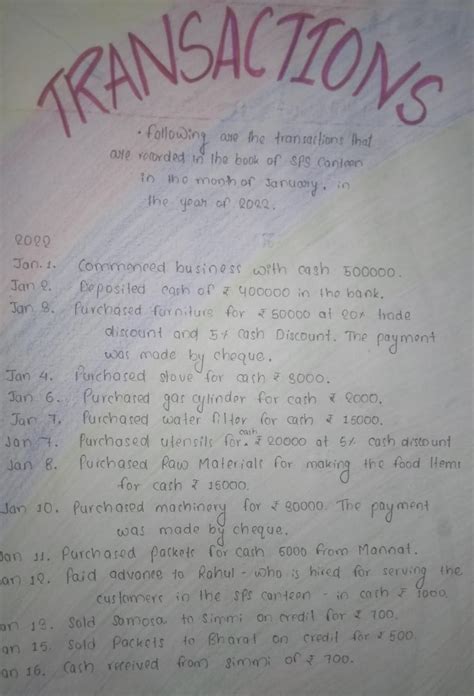 TRANSACTIONS
• Following are the transactions that
are recorded in the book of SPS Canteen
in the month of January, in
the year of 2022.
2022
Jan. 1. Commenced business with cash 500000.
Jan 2. Deposited cash of ₹ 400000 in the bank.
Jan 3. Purchased furniture for ₹ 50000 at 20% trade
discount and 5% cash Discount. The payment
was made by cheque.
Jan 4. Purchased stove for cash ₹ 8000.
Jan 6. Purchased gas cylinder for cash ₹ 2000.
Jan 7. Purchased water filter for cash ₹ 15000.
Jan 7. Purchased utensils for cash ₹ 20000 at 5% cash discount
Jan 8. Purchased Raw Materials for making the food Items
for cash ₹ 15000.
Jan 10. Purchased machinery for ₹ 80000. The payment
was made by cheque.
Jan 11. Purchased Packets for cash 5000 from Mannat.
an 12. Paid advance to Rahul - who is hired for serving the
customers in the SPS canteen - in cash ₹ 1000.
an 13. Sold Samosa to Simmi on credit for ₹ 700.
an 15. Sold Packets to Bharat on credit for ₹ 500.
an 16. Cash received from simmi of ₹ 700.